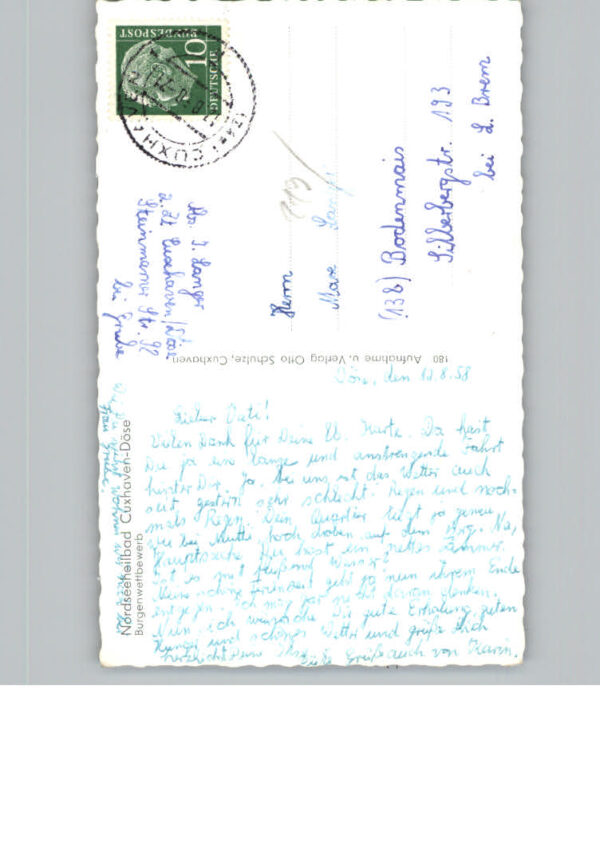 Nordseeheilbad Cuxhaven-Döse
Burgenwettbewerb
180 Aufnahme u. Verlag Otto Schulze, Cuxhaven
DEUTSCHE
BUNDESPOST
10
CUXHA
Döse, den 12.8.58
Vielen Dank für Deine lb. Karte. Da hast
Du ja eine lange und anstrengende Fahrt
hinter Dir. Ja, bei uns ist das Wetter auch
seit gestern sehr schlecht. Regen und noch-
mals Regen. Dein Quartier liegt ja genau
wie bei Mutti hoch droben auf dem Berg. Na,
Hauptsache Du hast ein nettes Zimmer.
Ist es mit
Meine schöne Ferienzeit geht ja nun ihrem Ende
entgegen. Ich mag gar nicht daran denken.
Nun, ich wünsche Dir gute Erholung, guten
Humor und schönes Wetter und grüße Dich
herzlichst
Viele Grüße auch von Karin.
Frau Grube.
Abs. J. Langer
z. Zt. Cuxhaven/Döse
Steinmarner Str. 92
bei Grube
Herrn
Max Langer
(13b) Bodenmais
Silberbergstr. 193
bei L. Brem